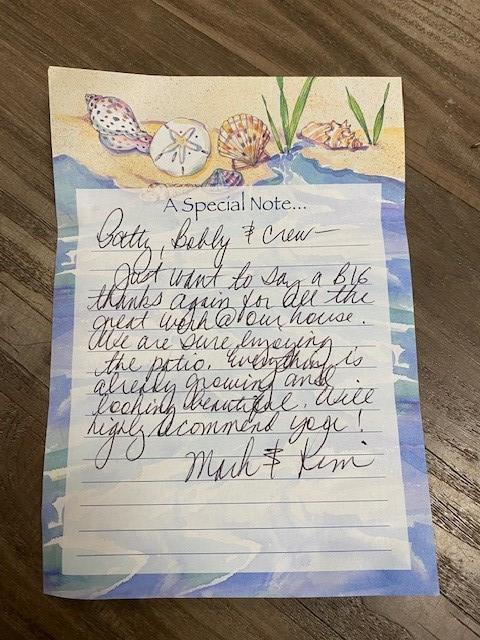 A Special Note...
Patty, Bobby & Crew—
Just want to say a BIG
thanks again for all the
great work @ our house.
We are sure enjoying
the patio. Everything is
already growing and
looking beautiful. Will
highly recommend you!
Mark & Kim